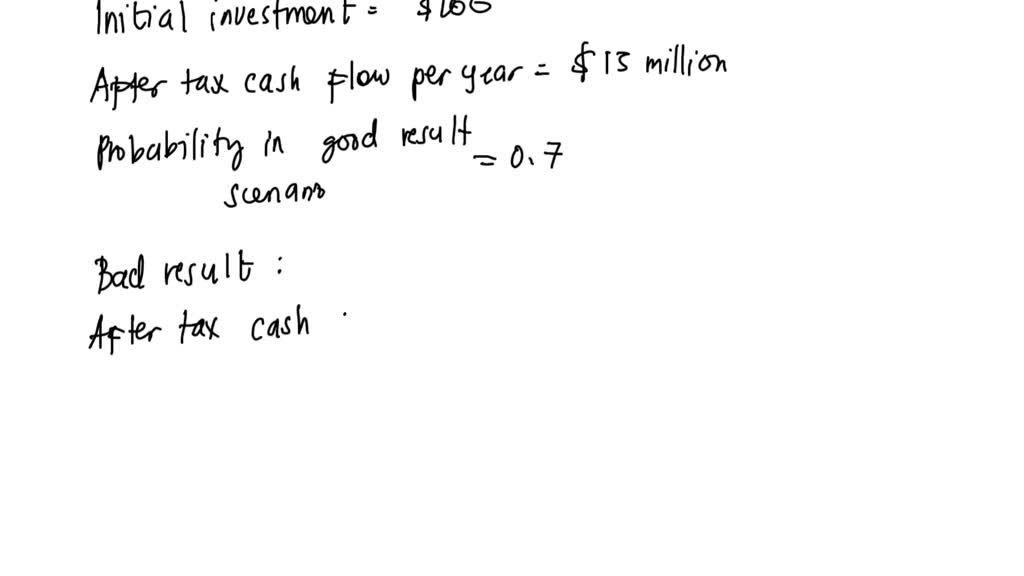 Initial investment = $100
After tax cash flow per year = $ 13 million
Probability in good result = 0.7
scenario
Bad result :
After tax cash